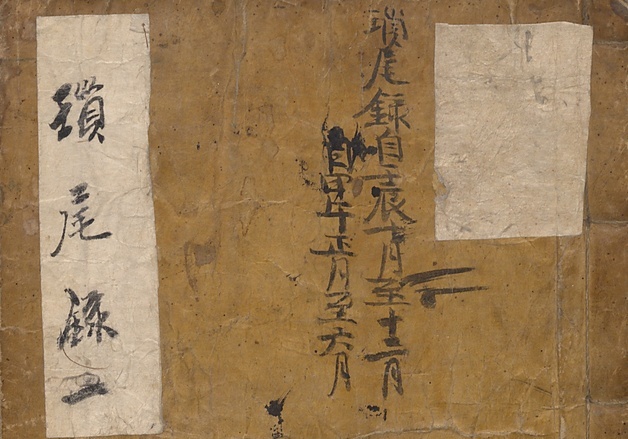 瑣尾錄自壬辰月至十二月
自正月至六月
瑣尾錄二